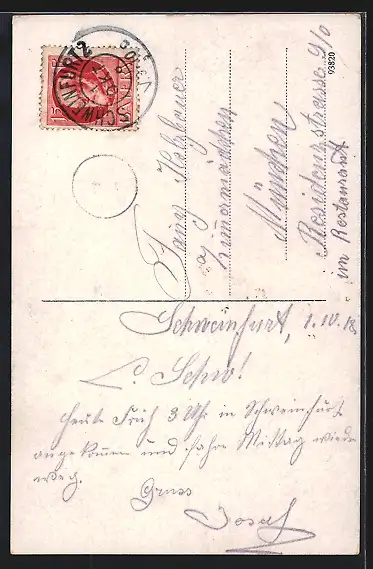 SCHWEINFURT 2
BAYERN
Fany Holzbauer
Zimmermädchen
München
Residenzstrasse 9/0
im Restaurant
93820
Schweinfurt, 1.10.18
L. Schw!
heute Früh 3 Uhr in Schweinfurt
angekommen und fahre Mittag wieder
weg.
Gruss
Josef